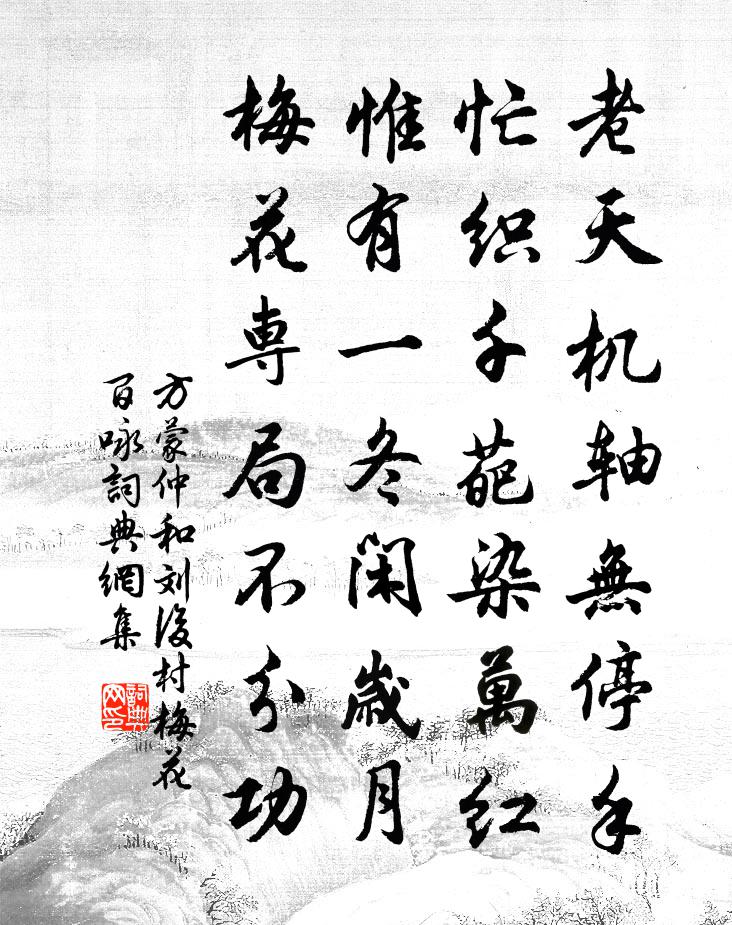 老天机轴無停手
忙织千葩染萬红
惟有一冬闲歳月
梅花専局不分功
方蒙仲和刘後村梅花
百咏詞典網集
詞典
网印